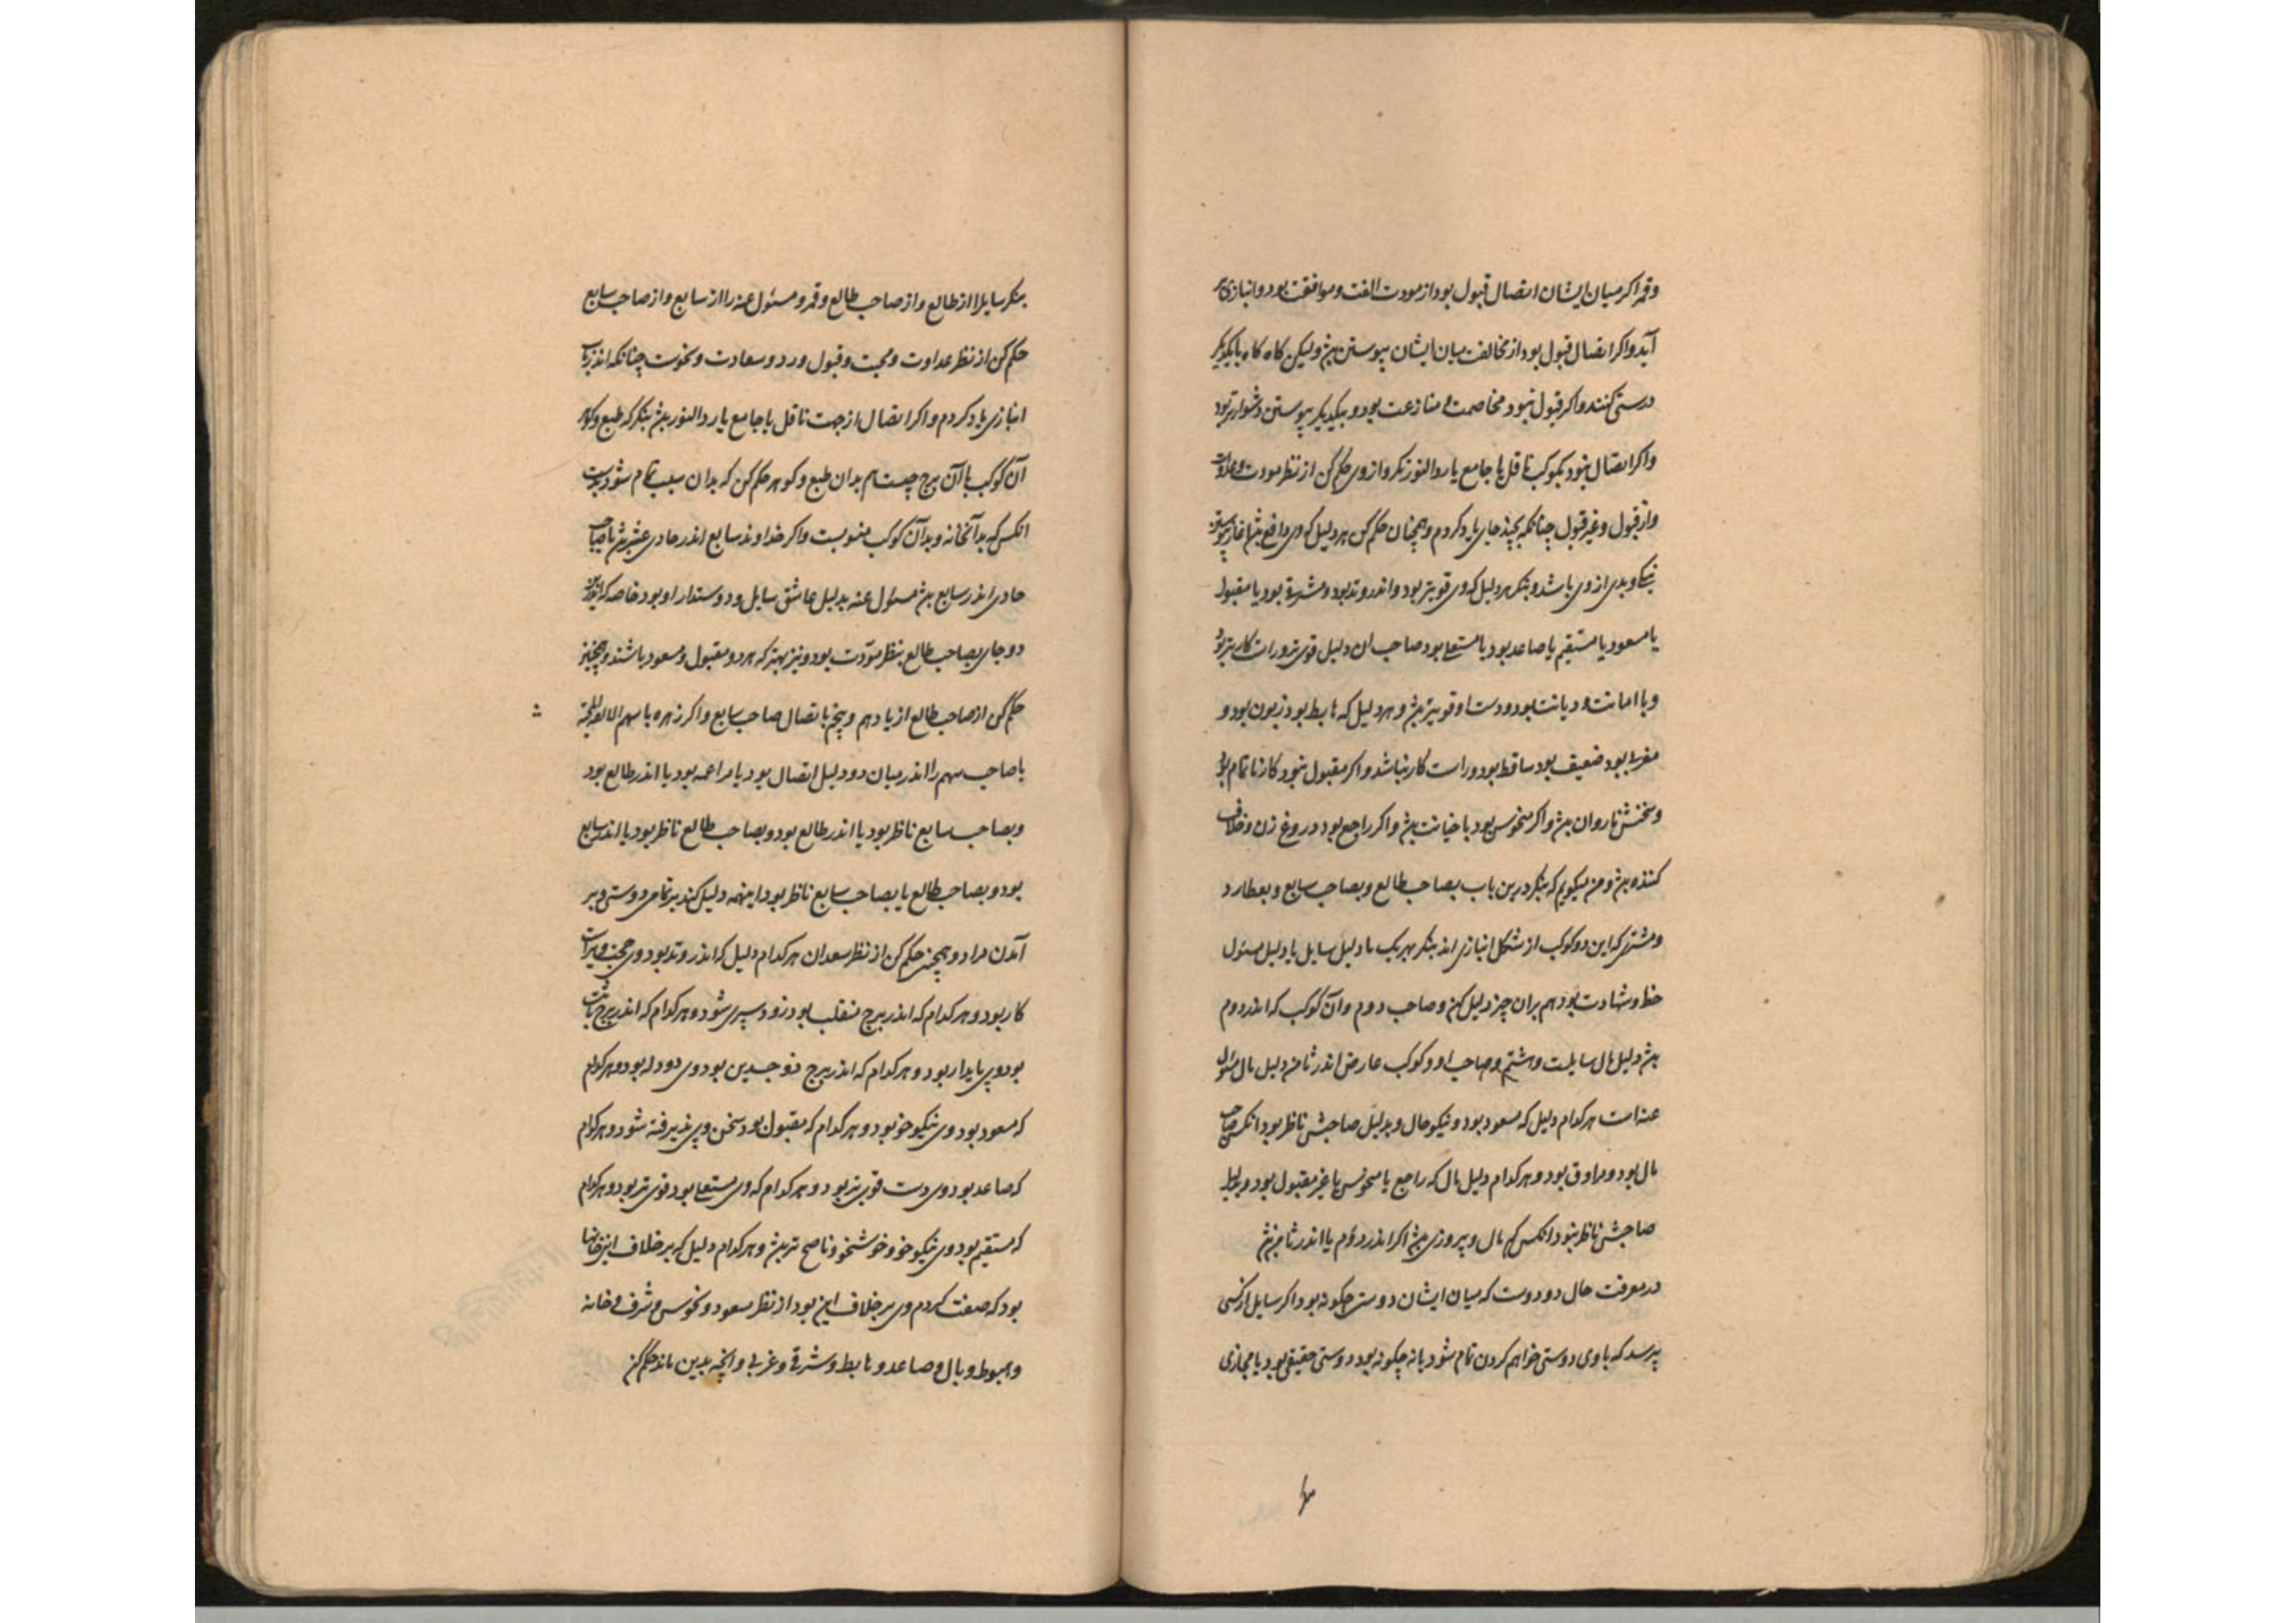 وقمر اکر میان ایشان اتصال قبول بود از مودت الفت و موافقت بود و انبازی بر
آید و اکر اتصال قبول بود از مخالفت میان ایشان پیوستن بیش ولیکن کاه کاه با یکدیکر
درستی کنند و اکر قبول نبود مخاصمت و منازعت بود و بیکدیکر پیوستن دشوارتر بود
و اکر اتصال نبود بکوکب ناقل یا جامع یا رد النور نکر و از وی حکم کن از نظر مودت و عداوت
و از قبول و غیر قبول چنانکه بچند جای یاد کردم و همچنان حکم کن هر دلیل که وی دافع
نیکی و بدی از وی باشد و بنکر هر دلیل که وی قویتر بود و اندر وتد بود و مشرق بود یا مقبول
یا مسعود یا مستقیم یا صاعد بود یا مستعلی بود صاحب ان دلیل قوی تر و راست کارتر بود
و با امانت و دیانت بود و دست او قویتر بیش و هر دلیل که هابط بود زبون بود و
مغرب بود ضعیف بود ساقط بود و راست کار نباشد و اکر مقبول نبود کار ناتمام بود
و سخنش ناروان بیش و اکر منحوس بود با خیانت بیش و اکر راجع بود دروغ زن و خلاف
کننده بیش و من میکویم که بنکر درین باب بصاحب طالع و بصاحب سابع و بعطارد
و مشتری که این دو کوکب از شکل انبازی اند بنکر بهر یک با دلیل سایل یا دلیل مسئول
حظ و شهادت بود هم بران چیز دلیل کن و صاحب دوم و آن کوکب که اندر دوم
بیش دلیل مال سایلست و هشتم و صاحب او و کوکب عارض اندر ثامن دلیل مال مسئول
عنه است هر کدام دلیل که مسعود بود و نیکو حال و بدلیل صاحبش ناظر بود انکس صاحب
مال بود و مرزوق بود و هر کدام دلیل مال که راجع یا منحوس یا غیر مقبول بود و بدلیل
صاحبش ناظر نبود انکس کم مال و بی روزی بیش اکر اندر دوم یا اندر ثامن بیش
در معرفت حال دو دوست که میان ایشان دوستی چکونه بود اکر سایل از کسی
پرسد که با وی دوستی خواهم کردن تمام شود یا نه چکونه بود دوستی حقیقی بود یا مجازی
بنکر سایل را از طالع و از صاحب طالع و قمر و مسئول عنه را از سابع و از صاحب سابع
حکم کن از نظر عداوت و محبت و قبول و رد و سعادت و نحوست چنانکه اندر باب
انبازی یاد کردم و اکر اتصال از جهت ناقل یا جامع یا رد النور بیش بنکر که طبع و کوهر
آن کوکب با آن برج چیست هم بدان طبع و کوهر حکم کن که بدان سبب تمام شود بدست
انکس که بدآنخانه و بدآن کوکب منسوبست و اکر خداوند سابع اندر حادی عشر بیش یا صاحب
حادی اندر سابع بیش مسئول عنه بدلیل عاشق سایل و دوستدار او بود خاصه که
دو جای بصاحب طالع بنظر مودت بود و نیز بهتر که هر دو مقبول و مسعود باشند و همچنین
حکم کن از صاحب طالع از یازدهم و پنجم باتصال صاحب سابع و اکر زهره با سهم الالفه و المحبة
با صاحب سهم را اندر میان دو دلیل اتصال بود یا مراعمه بود یا اندر طالع بود
و بصاحب سابع ناظر بود یا اندر طالع بود و بصاحب طالع ناظر بود یا اندر سابع
بود و بصاحب طالع یا بصاحب سابع ناظر بود اینهمه دلیل کند بر تمامی دوستی و بر
آمدن مراد و همچنین حکم کن از نظر سعدان هر کدام دلیل که اندر وتد بود وی محب و
کار بود و هر کدام که اندر برج منقلب بود زود سپری شود و هر کدام که اندر برج ثابت
بود وی پایدار بود و هر کدام که اندر برج ذو جسدین بود وی دو دله بود و هر کدام
که مسعود بود وی نیکو خو بود و هر کدام که مقبول بود سخن وی پذیرفته شود و هر کدام
که صاعد بود وی دست قوی تر بود و هر کدام که وی مستعلی بود قوی تر بود و هر کدام
که مستقیم بود وی نیکو خو و خوشخو و ناصح تر بیش و هر کدام دلیل که بر خلاف این خانها
بود که صفت کردم وی بر خلاف این بود از نظر مسعود و نحوس و شرف و خانه
و هبوط و وبال و صاعد و هابط و شرقی و غربی و انچه بدین ماند حکم کن